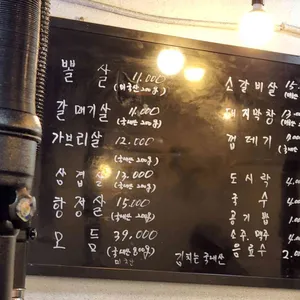 뽈 살 11,000
(미국산 200g)
갈매기살 11,000
(국내산 200g)
가브리살 12,000
(국내산 200g)
삼겹살 13,000
(국내산 200g)
항정살 15,000
(국내산 200g)
모 듬 39,000
(국내산 800g)
미국산
소갈비살 15
돼지막창 13
껍데기
도시락 4
국 수 4
공기밥 1
소주, 맥주 4
음료수 2,00
김치는 국내산